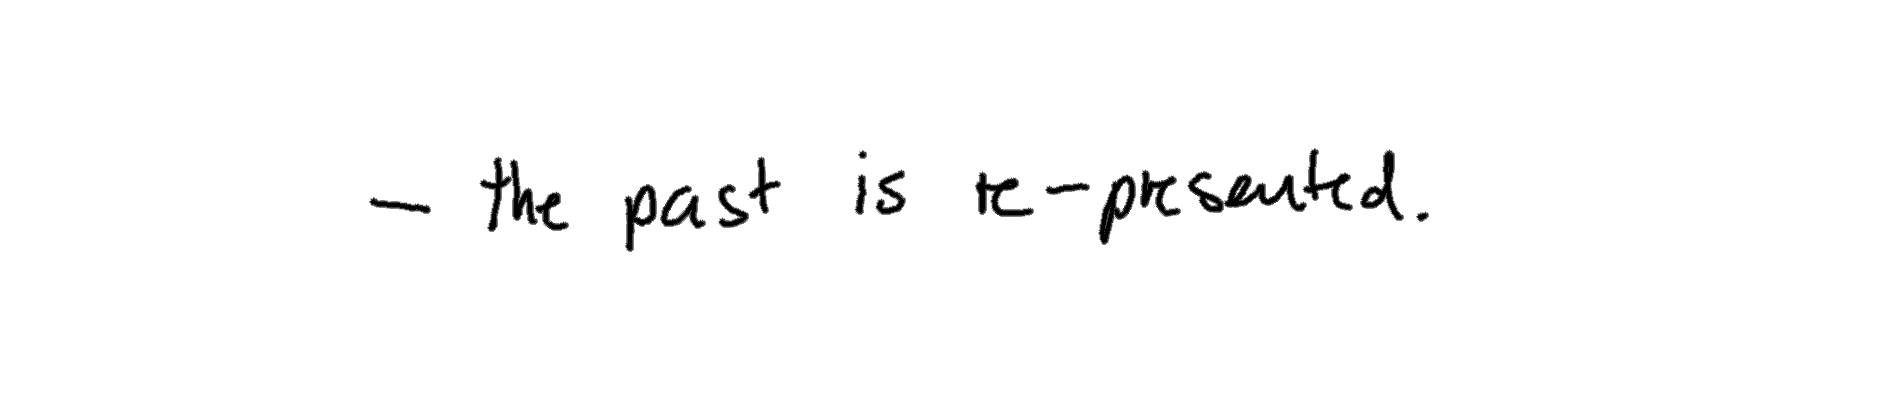 - the past is re-presented.